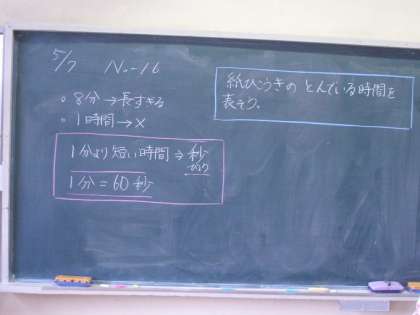 5/7 No.16
紙ひこうきの とんでいる時間を
表そう。
○ 8分→長すぎる
○ 1時間→×
1分より短い時間⇒秒
びょう
1分=60秒